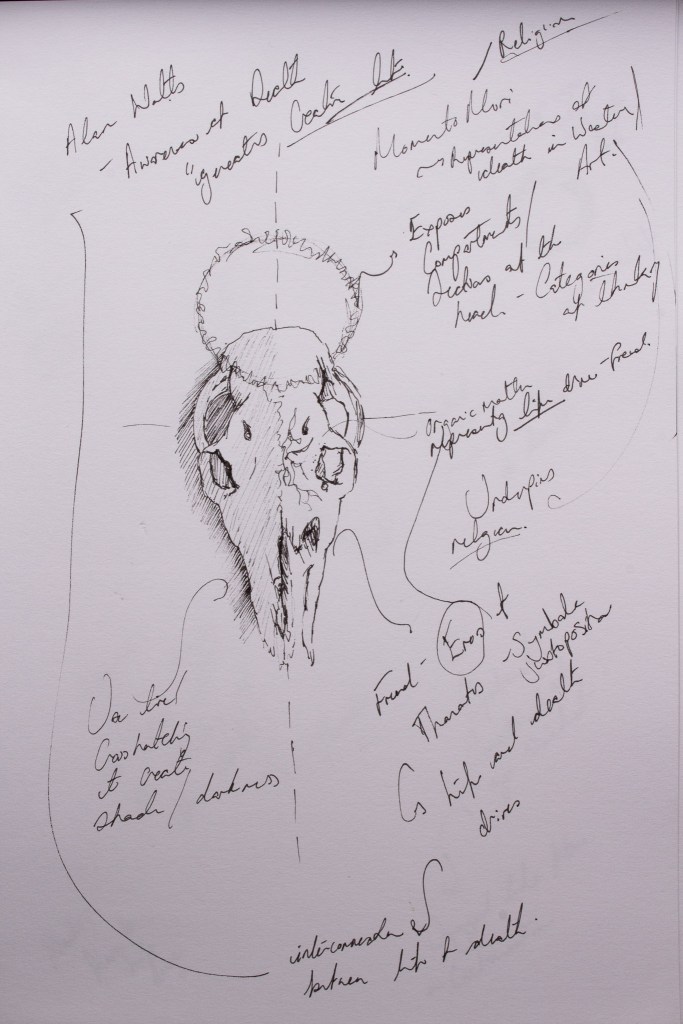 Alan Watts
- Awareness of Death
"generates Creative life.
/ Religion
Momento Mori
~ Representations of
death in Western
Art.
Exposes
Compartments /
Sections of the
head - Categories
of thinking
Organic matter
representing life drive - Freud.
Underpins
religion.
Freud - Eros &
Thanatos - Symbolic
juxtaposition
Gs life and death
drives
Use line /
Crosshatching
to create
shade / darkness
interconnection
between life & death.